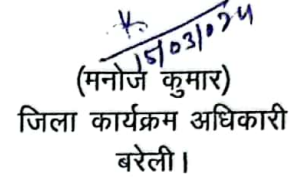 15/03/024
(मनोज कुमार)
जिला कार्यक्रम अधिकारी
बरेली।